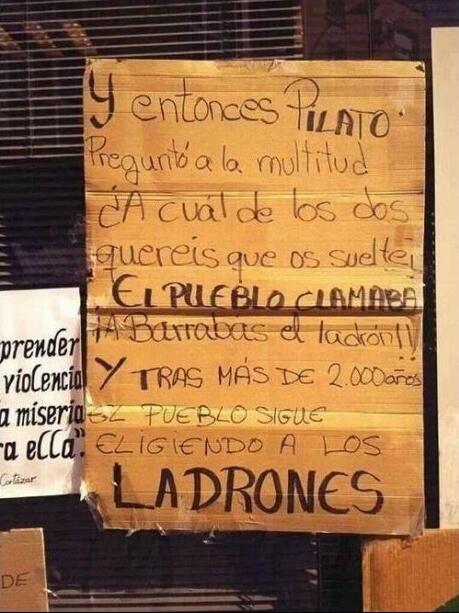 Y entonces PILATO
Preguntó a la multitud
¿A cuál de los dos
quereis que os suelte¡
EL PUEBLO CLAMABA
¡A Barrabas el ladrón!!
Y TRAS MÁS DE 2.000 años
EL PUEBLO SIGUE
ELIGIENDO A LOS
LADRONES
prender
violencia
a miseria
ra ella".
Cortázar
DE